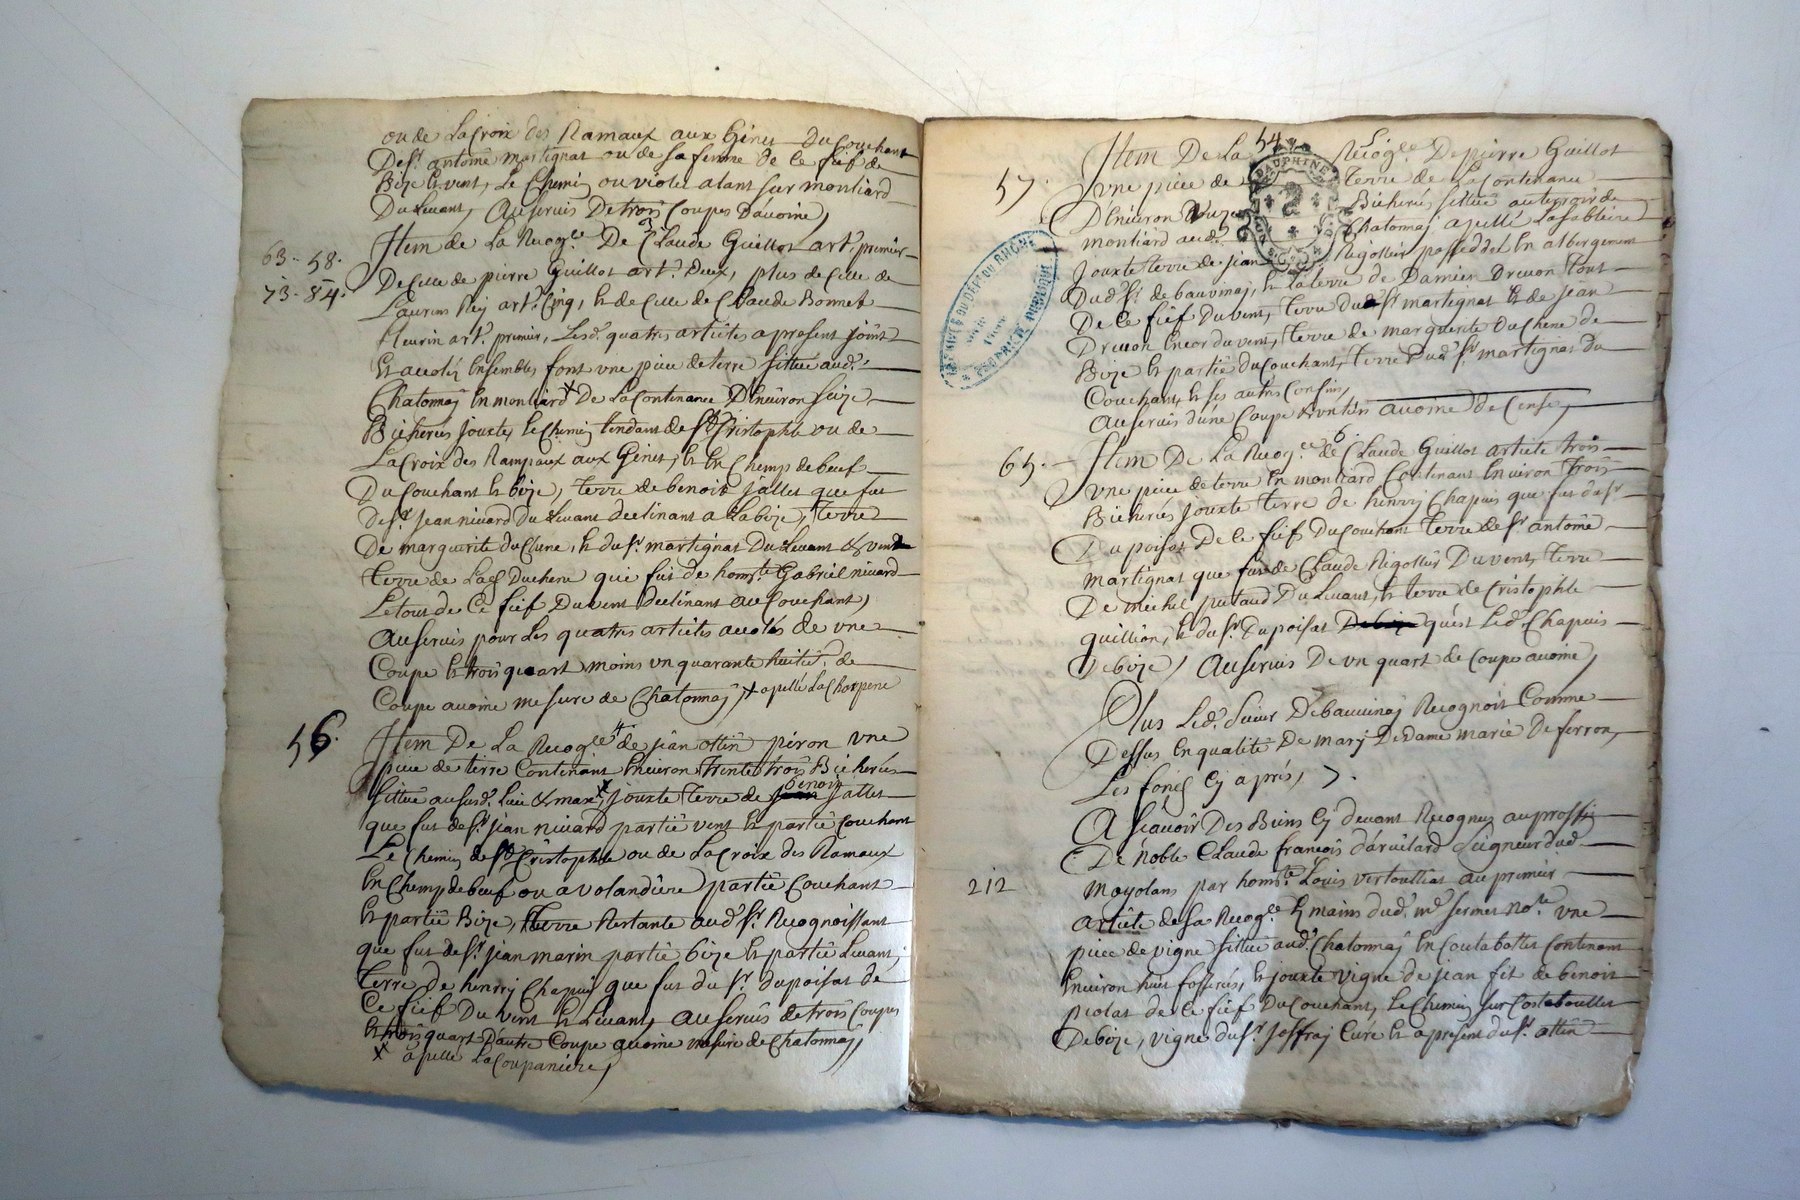 ou de La Croix des Ramaux aux Genets Du Couchant
De sr. antoine martignat ou de sa femme de ce fief de
Bize & vent, Le Chemin ou violet alant sur montiard
Du Levant, Au servis De trois Coupes D'avoine,
63. 58.
73. 84.
Item de La Recogle. De Claude Guillot art. premier
De Celle de pierre Guillot art. Deux, plus de Celle de
Laurens Rey art. Cinq, & de Celle de Claude Bonnet
fleurin art. premier, Lesd. quatres articles a present joint
& accolés Ensembles font une piece de terre sittuée aud.
Chatonnaj En montiard x De La Contenance D'Environ Seize
Bicherées jouxte, Le Chemin tendant de St. Cristophle ou de
La Croix des Rampaux aux Genets, & En Champ de beuf
Du Couchant & bize, terre de benoit jallet que fut
de sr. jean nivard du Levant declinant a La bize, terre
De marguerite du Chene, & du sr. martignat Du Levant & vent
terre de Lad. Duchene qui fut de homte. Gabriel nivard
Le tout de Ce fief Du vent declinant au Couchant,
Au servis pour Les quatres articles accolés de une
Coupe & trois quart moins un quarante huite. de
Coupe avoine mesure de Chatonnaj, x apellé La Charpene
56.
Item De La Recogle. 4 de jean ottin piron une
piece de terre Contenant Environ trente trois Bicherées
Sittuée au susd. Lieu & mas x, jouxte terre de benoit jallet
que fut de sr. jean nivard partie vent & partie Couchant
Le Chemin de St. Cristophle ou de La Croix des Ramaux
En Champ de beuf ou a volandiere partie Couchant
& partie Bize, terre Restante aud. sr. Recognoissant
que fut de sr. jean marin partie bize & partie Levant,
terre de henry Chapuis que fut du sr. dupoisat de
Ce fief Du vent & Levant, au servis de trois Coupes
& trois quart D'autre Coupe avoine mesure de Chatonnaj,
x apellé La Coupaniere,
54
57.
Item De La Recogle. De pierre Guillot
une piece de terre de La Contenance
D'Environ Bicherées sittuée au terroir de
montiard aud. Chatonnaj apellé La sabliere
jouxte terre de jean Rigollier possedée En albergement
Dud. sr. de bauvinaj, & La terre de Damien Drevon tout
De Ce fief Du vent, terre dud. sr. martignat & de jean
Drevon Encor du vent, terre de marguerite du Chene de
Bize & partie du Couchant, terre Dud. sr. martignat du
Couchant, & ses autres Confins,
Au servis d'une Coupe avoine de Cense,
65.
Item De La Recogce. 6 de Claude Guillot article trois
une piece de terre En montiard Contenant Environ trois
Bicherées jouxte terre de henry Chapuis que fut du sr.
Dupoisat De Ce fief Du Couchant terre de sr. antoine
martignat que fut de Claude Rigollier Du vent, terre
De michel putaud Du Levant, & terre de Cristophle
quillion, & du sr. Dupoisat qu'est Led. Chapuis
De bize, Au servis De un quart de Coupe avoine,
Plus Led. Sieur De bauvinaj Recognoit Comme
Dessus En qualité De mary De Dame marie De ferron,
Les fonds Cy aprés,
A sçavoir Des Biens Cy devant Recognus au proffit
De noble Claude françois d'aruilard Seigneur dud.
212
moyolans par homte. Louis vertoullat au premier
article de sa Recogle. Es mains dud. me. sermet nore. une
piece de vigne sittuée aud. Chatonnaj En Coutabottet Contenant
Environ huit fosserées, & jouxte vigne de jean fet de benoit
piolat de Ce fief Du Couchant, Le Chemin sur Costeboullet
De bize, vigne du sr. joffraj Curé & a present du sr. ottin
DAUPHINÉ
ARCHIVES DU DEPT DU RHONE
PROPRIÉTÉ PUBLIQUE